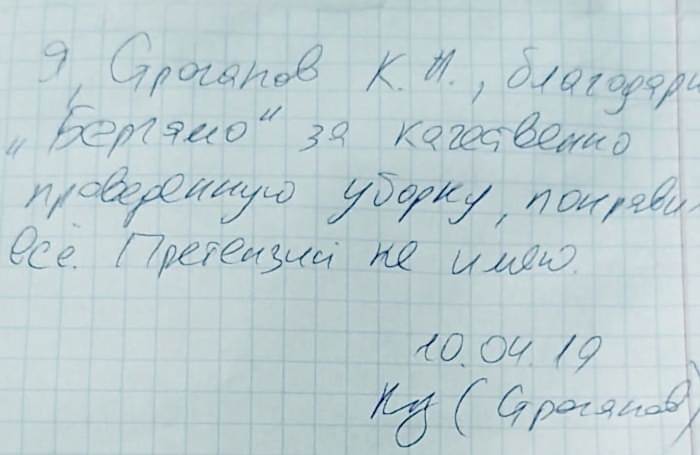 Я, Строганов К.И., благодарю
"Бергамо" за качественно
проведенную уборку, понрави
всё. Претензий не имею.
10.04.19
(Строганов)